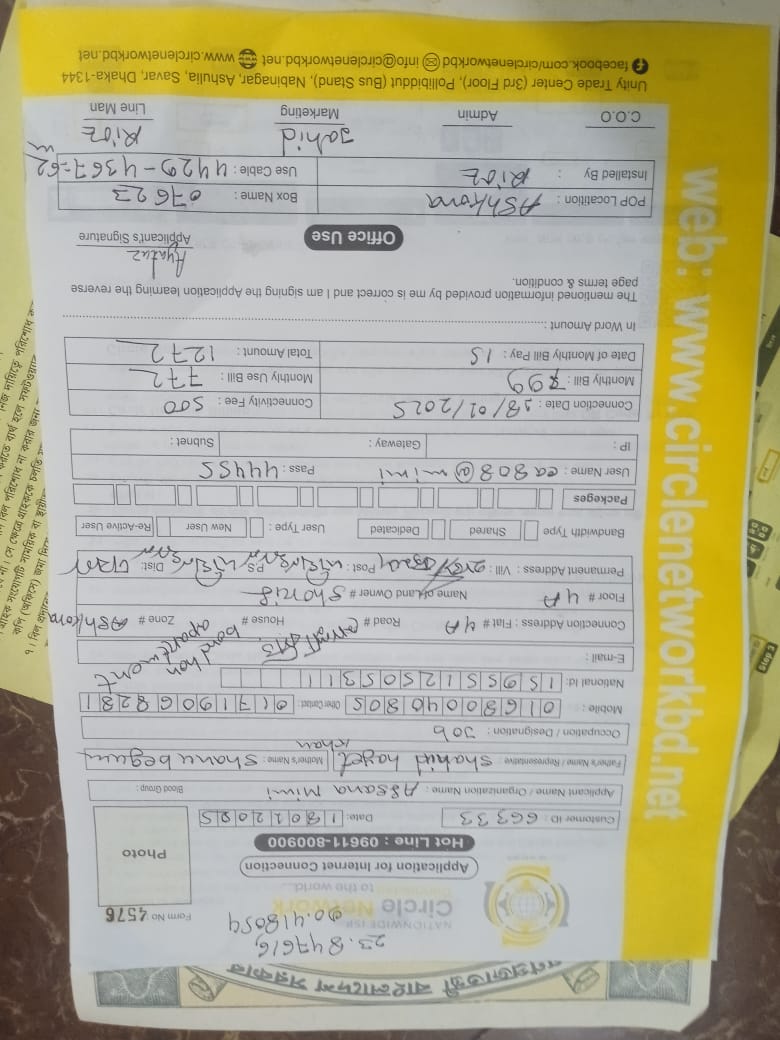 গণপ্রজাতন্ত্রী বাংলাদেশ সরকার
23.847616
90.418054
NATIONWIDE ISP
Circle Network
to the world...
Form No 4576
Application for Internet Connection
Hot Line : 09611-800900
Photo
Customer ID : 66333 Date: 18012025
Applicant Name / Organization Name : Afsana Mimi Blood Group :
Father's Name / Representative : Shahid hayet khan Mother's Name : Shanu begum
Occupation / Designation : Job
Mobile : 01680040805 Other Contact: 01719068281
National Id: 1595512505311
E-mail :
bondhon apartment
Connection Address : Flat # 4A Road # House # Zone # AShkona
Floor # 4A Name of Land Owner # Shorif
Permanent Address : Vill : Post : P.S : Dist:
Bandwidth Type Shared Dedicated User Type : New User Re-Active User
Packeges
User Name : ea808@mimi Pass : 44455
IP : Gateway : Subnet :
Connection Date : 18/01/2025 Connectivity Fee : 500
Monthly Bill : 799 Monthly Use Bill : 772
Date of Monthly Bill Pay : 15 Total Amount : 1272
In Word Amount :
The mentioned information provided by me is correct and I am signing the Application learning the reverse
page terms & condition.
Applicant's Signature
Office Use
POP Locatition : AShkona Box Name : 07623
Installed By : Use Cable : 4429-4367=62 m
Jahid
C.O.O Admin Marketing Line Man
Unity Trade Center (3rd Floor), Pollibidut (Bus Stand), Nabinagar, Ashulia, Savar, Dhaka-1344
facebook.com/circlenetworkbd info@circlenetworkbd.net www.circlenetworkbd.net
web: www.circlenetworkbd.net